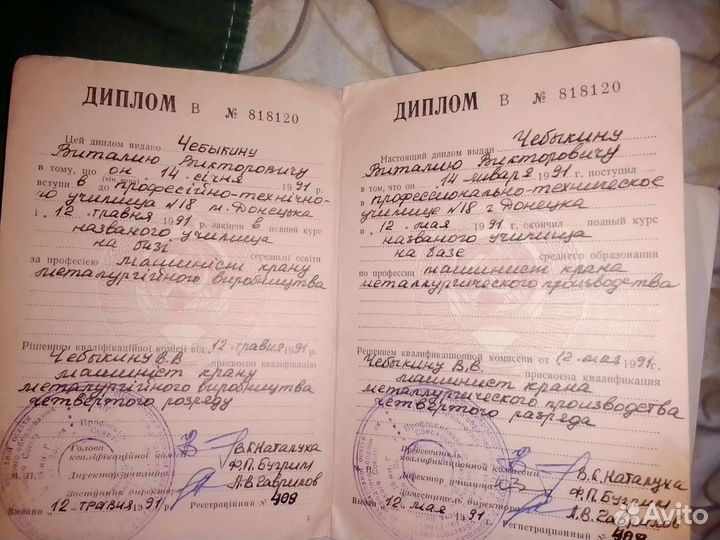 ДИПЛОМ В № 818120
Цей диплом видано Чебыкину
Виталию Викторовичу
в тому, що он 14 січня 1991 р.
вступи в до професійно-технічно-
го училища №18 м. Донецка
і 12 травня 1991 р. закінчи в повний курс
названого училища
на базі середньої освіти
за професією машиніст крану
металургійного виробництва
Рішенням кваліфікаційної комісії від 12 травня 1991 р.
Чебыкину В.В присвоєно кваліфікацію
машиніст крану
металургійного виробництва
четвертого розряду
Голова
кваліфікаційної комісії В.К.Наталуха
М. П. Директор училища Ф.П.Бугрим
Заступник директора Л.В.Гаврилов
Видано 12 травня 1991 р. Реєстраційний № 409
ДИПЛОМ В № 818120
Настоящий диплом выдан Чебыкину
Виталию Викторовичу
в том, что он 14 января 1991 г. поступил
в профессионально-техническое
училище №18 г Донецка
и 12 мая 1991 г. окончил полный курс
названого училища
на базе среднего образования
по профессии машинист крана
металлургического производства
Решением квалификационной комиссии от 12 мая 1991 г.
Чебыкину В.В. присвоена квалификация
машинист крана
металлургического производства
четвертого разряда
Председатель
квалификационной комиссии В.К.Наталуха
М. П. Директор училища Ф.П.Бугрим
Заместитель директора Л.В.Гаврилов
Выдан 12 мая 1991 г. Регистрационный № 409
Avito